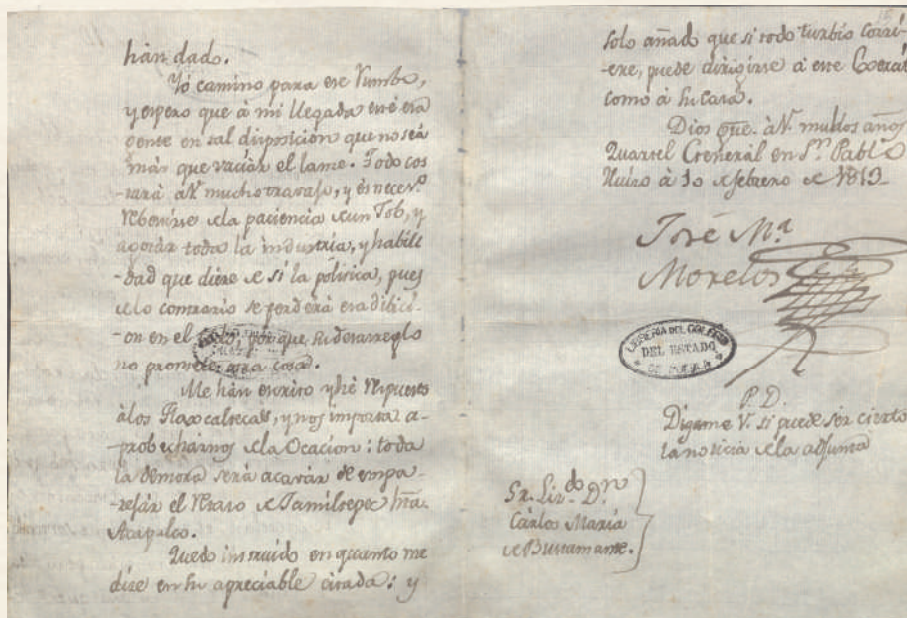 han dado.
Yó camino para ese Rumbo,
y espero que à mi llegada esté esa
gente en tal disposicion que no séa
más que vaciár el lame. Todo cos-
-tará à V. mucho travajo, y és neces.o
rebestirse de la paciencia de un Job, y
agotár toda la industria, y habili-
-dad que dicre de si la politica, pues
de lo contrario se perderá esa divici-
-on en el todo, porque su desarreglo
no promete otra cosa.
Me hán escrito y hé respuesto
àlos Tlaxcaltecas, y nos importa a-
-probechárnos de la Ocacion: toda
la demora será acavár de empa-
-rejár el Retaso de Jamiltepec hta.
Acapulco.
Quedo instruido en quanto me
dice en su apreciable citada: y
solo añado que si todo turbio corri-
-ere, puede dirigirse à este Exercito
como à su casa.
Dios gue. à V. muchos años
Quartel General en Sn. Pablo
Huiro à 10 de febrero de 1813
José Ma.
Morelos
P.D.
Digame V. si puede sér cierto
la noticia de la adjunta
Sr. Lizdo. Dn
Cárlos María
de Bustamante.
LIBRERIA DEL COLEGIO
DEL ESTADO
DE PUEBLA